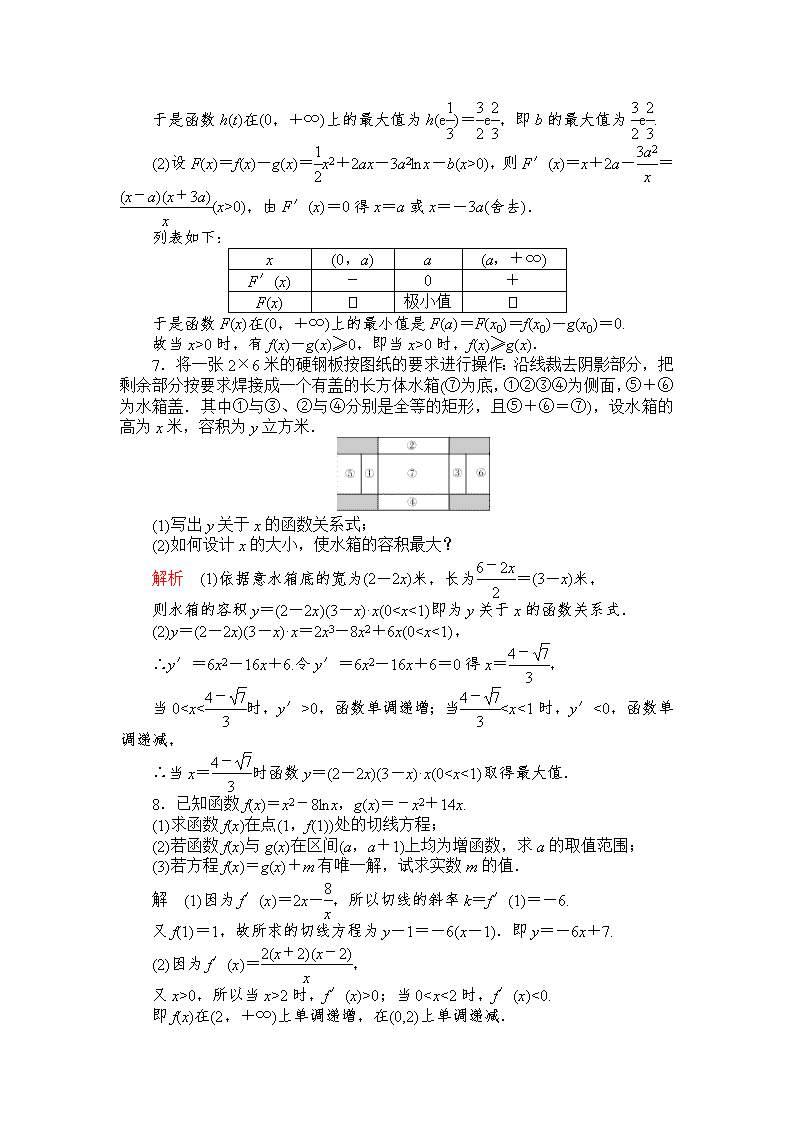 于是函数 h(t)在(0，+∞)上的最大值为 h(e^{1/3})=\frac{3}{2}e^{2/3}，即 b 的最大值为\frac{3}{2}e^{2/3}.
(2)设 F(x)=f(x)-g(x)=\frac{1}{2}x²+2ax-3a²ln x-b(x>0)，则 F′(x)=x+2a-\frac{3a²}{x}=
\frac{(x-a)(x+3a)}{x}(x>0)，由 F′(x)=0 得 x=a 或 x=-3a(舍去)．
列表如下：
x (0，a) a (a，+∞)
F′(x) - 0 +
F(x) □ 极小值 □
于是函数 F(x)在(0，+∞)上的最小值是 F(a)=F(x₀)=f(x₀)-g(x₀)=0.
故当 x>0 时，有 f(x)-g(x)≥0，即当 x>0 时，f(x)≥g(x)．
7．将一张 2×6 米的硬钢板按图纸的要求进行操作：沿线裁去阴影部分，把
剩余部分按要求焊接成一个有盖的长方体水箱(⑦为底，①②③④为侧面，⑤+⑥
为水箱盖．其中①与③、②与④分别是全等的矩形，且⑤+⑥=⑦)，设水箱的
高为 x 米，容积为 y 立方米．
②
⑤ ① ⑦ ③ ⑥
④
(1)写出 y 关于 x 的函数关系式；
(2)如何设计 x 的大小，使水箱的容积最大？
解析 (1)依据意水箱底的宽为(2-2x)米，长为\frac{6-2x}{2}=(3-x)米，
则水箱的容积 y=(2-2x)(3-x)·x(0<x<1)即为 y 关于 x 的函数关系式．
(2)y=(2-2x)(3-x)·x=2x³-8x²+6x(0<x<1)，
∴y′=6x²-16x+6.令 y′=6x²-16x+6=0 得 x=\frac{4-√7}{3}，
当 0<x<\frac{4-√7}{3}时，y′>0，函数单调递增；当\frac{4-√7}{3}<x<1 时，y′<0，函数单
调递减，
∴当 x=\frac{4-√7}{3}时函数 y=(2-2x)(3-x)·x(0<x<1)取得最大值．
8．已知函数 f(x)=x²-8ln x，g(x)=-x²+14x.
(1)求函数 f(x)在点(1，f(1))处的切线方程；
(2)若函数 f(x)与 g(x)在区间(a，a+1)上均为增函数，求 a 的取值范围；
(3)若方程 f(x)=g(x)+m 有唯一解，试求实数 m 的值．
解 (1)因为 f′(x)=2x-\frac{8}{x}，所以切线的斜率 k=f′(1)=-6.
又 f(1)=1，故所求的切线方程为 y-1=-6(x-1)．即 y=-6x+7.
(2)因为 f′(x)=\frac{2(x+2)(x-2)}{x}，
又 x>0，所以当 x>2 时，f′(x)>0；当 0<x<2 时，f′(x)<0.
即 f(x)在(2，+∞)上单调递增，在(0,2)上单调递减．